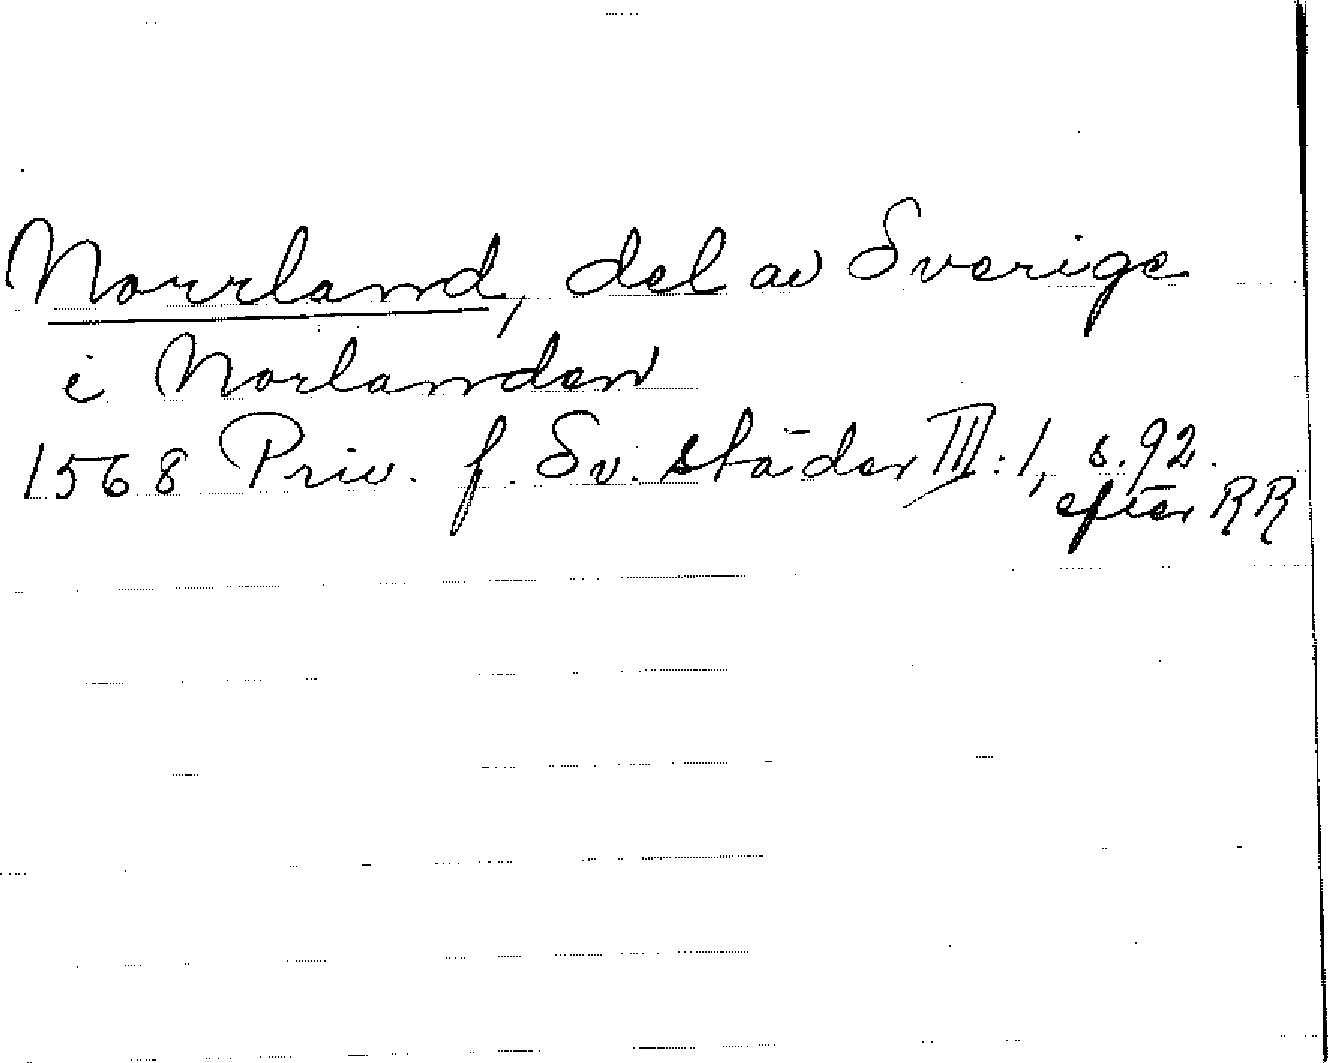 Norrland, del av Sverige
i Norlanden
1568 Priv. f. Sv. städer III:1, s. 92.
efter RR